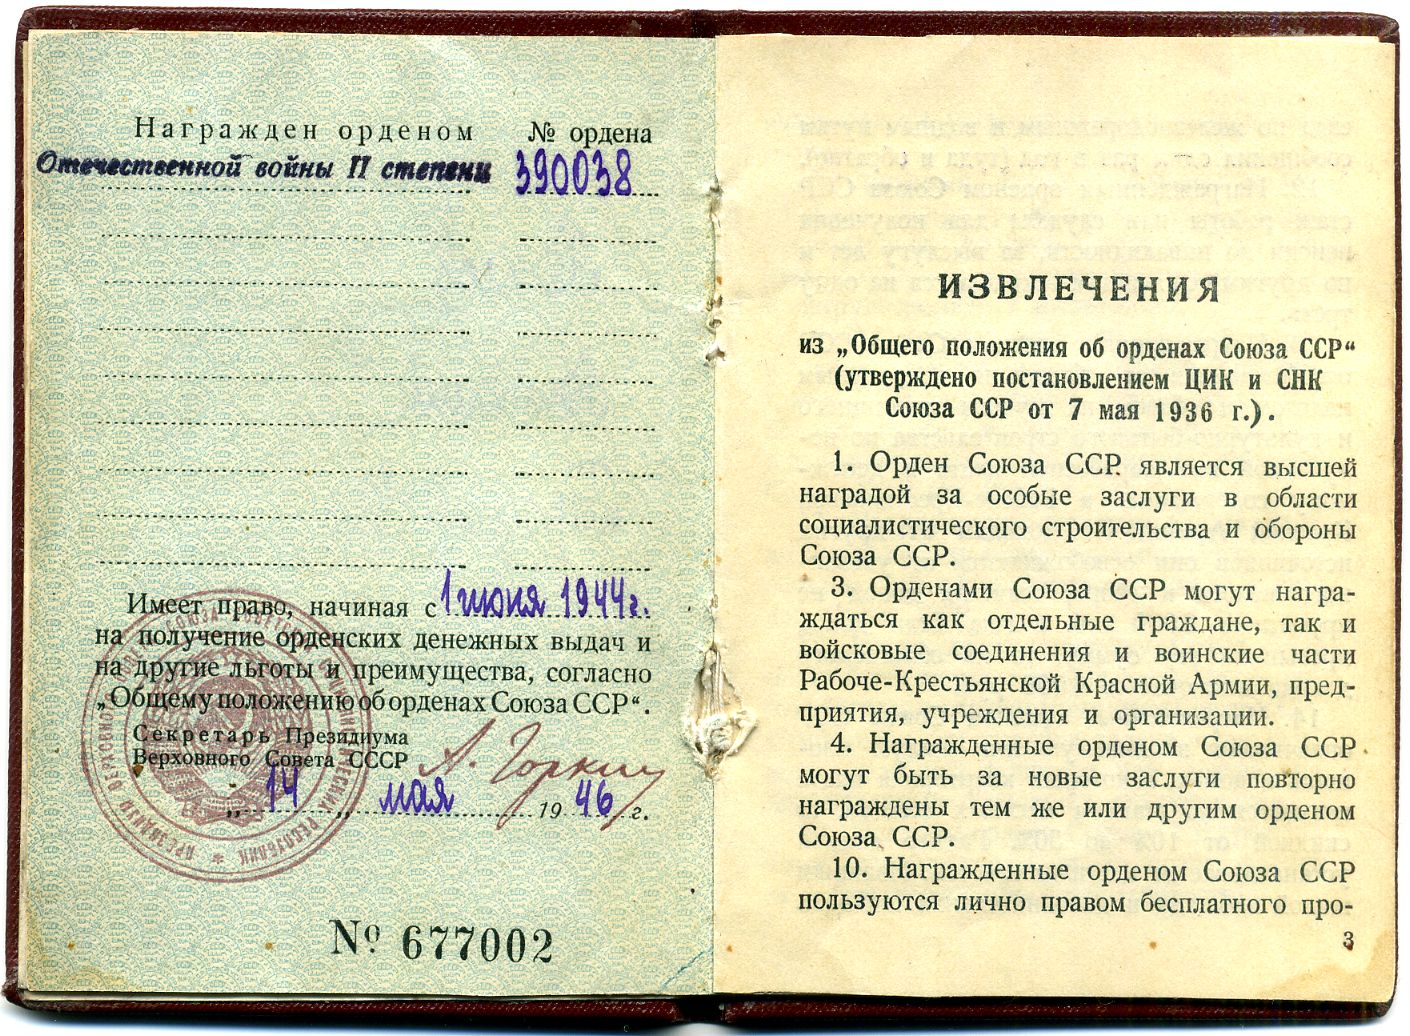 Награжден орденом № ордена
Отечественной войны II степени 390038
Имеет право, начиная с 1 июня 1944 г.
на получение орденских денежных выдач и
на другие льготы и преимущества, согласно
„Общему положению об орденах Союза ССР“.
Секретарь Президиума
Верховного Совета СССР А. Горкин
„ 14 „ мая 1946 г.
№ 677002
ИЗВЛЕЧЕНИЯ
из „Общего положения об орденах Союза ССР“
(утверждено постановлением ЦИК и СНК
Союза ССР от 7 мая 1936 г.).
1. Орден Союза ССР является высшей
наградой за особые заслуги в области
социалистического строительства и обороны
Союза ССР.
3. Орденами Союза ССР могут награ-
ждаться как отдельные граждане, так и
войсковые соединения и воинские части
Рабоче-Крестьянской Красной Армии, пред-
приятия, учреждения и организации.
4. Награжденные орденом Союза ССР
могут быть за новые заслуги повторно
награждены тем же или другим орденом
Союза ССР.
10. Награжденные орденом Союза ССР
пользуются лично правом бесплатного про-
3